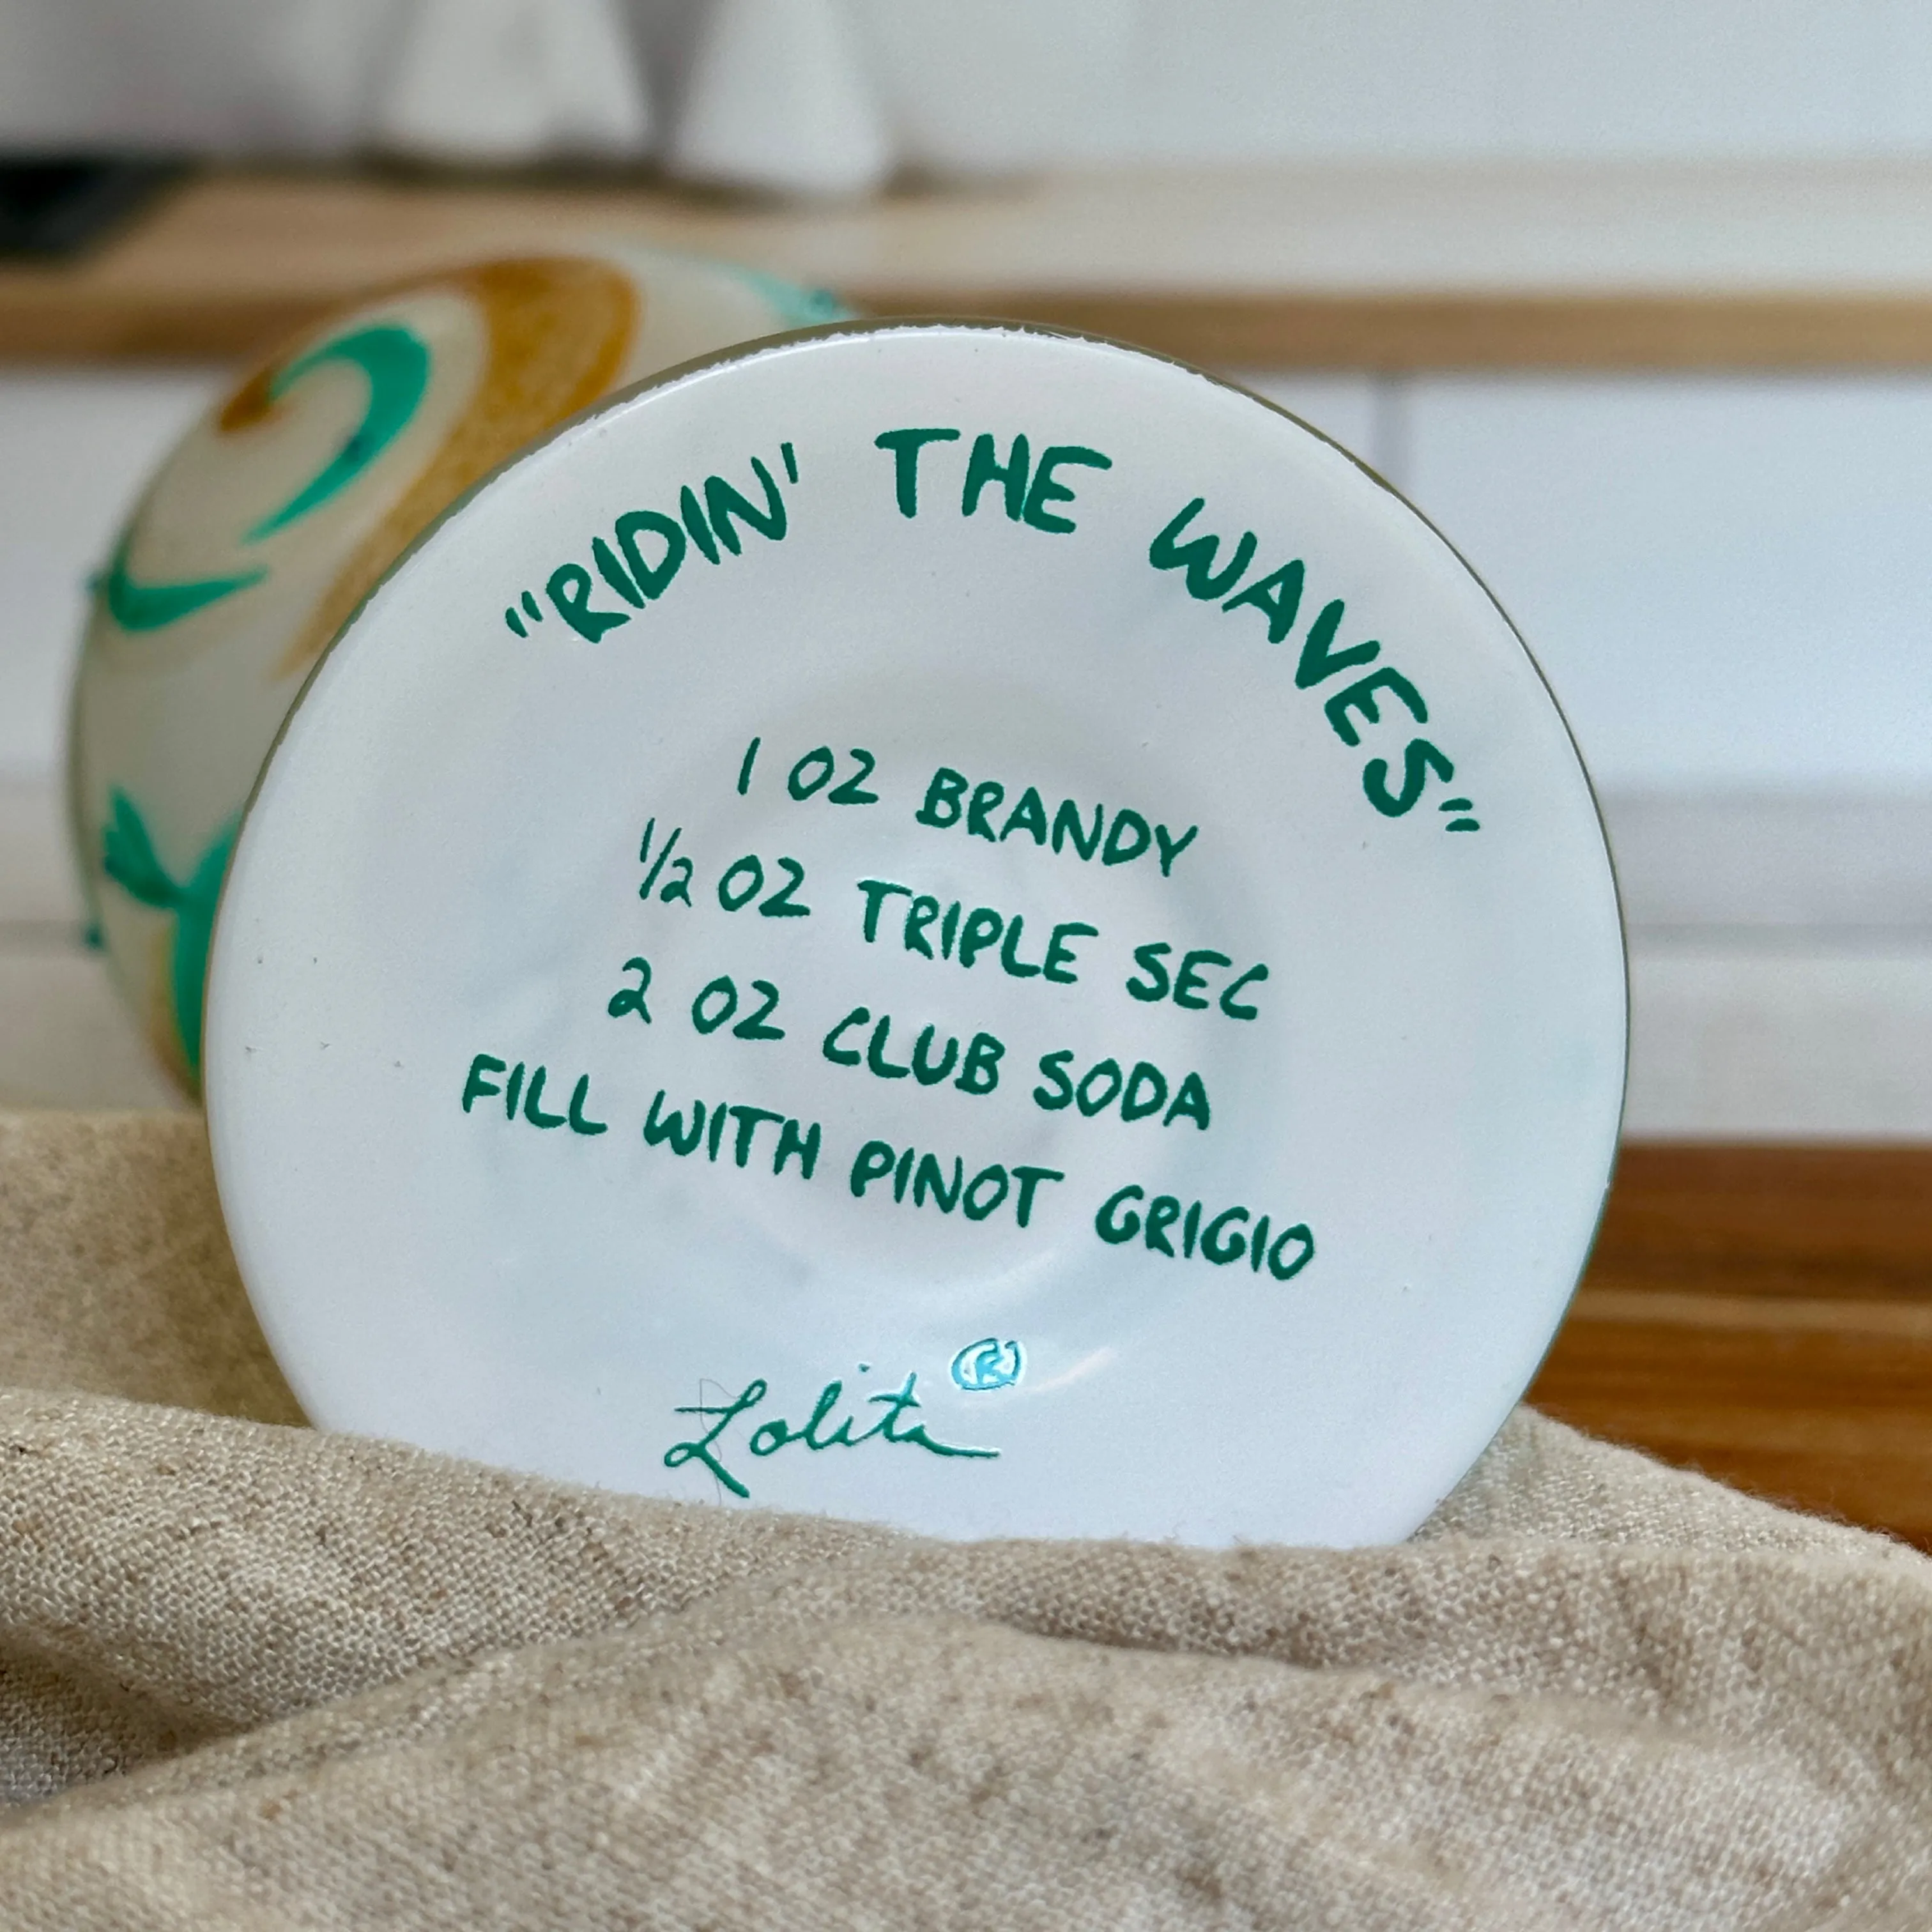 "RIDIN' THE WAVES"
1 OZ BRANDY
1/2 OZ TRIPLE SEC
2 OZ CLUB SODA
FILL WITH PINOT GRIGIO
Lolita®